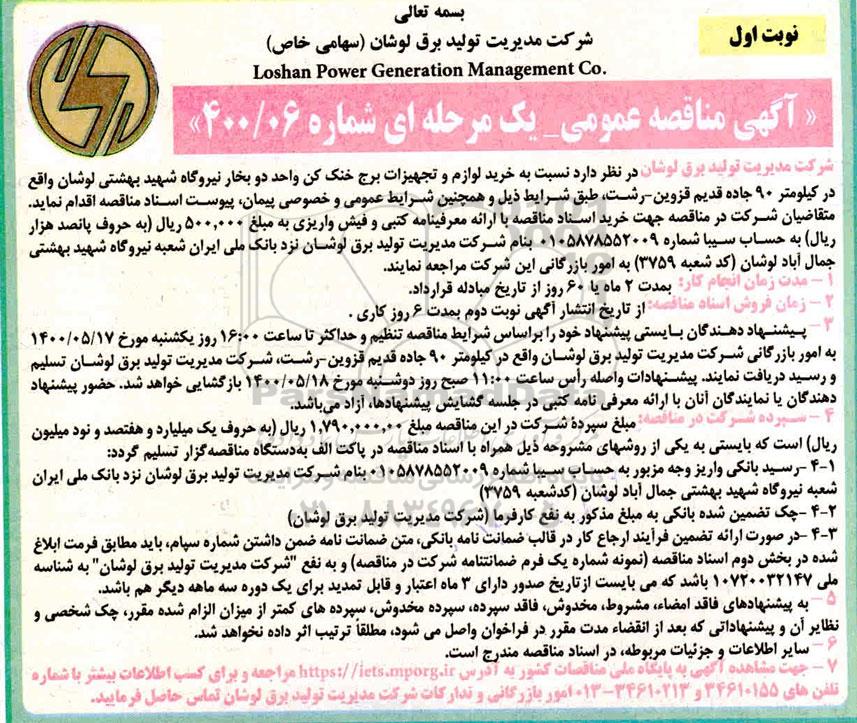 بسمه تعالی
نوبت اول
شرکت مدیریت تولید برق لوشان (سهامی خاص)
Loshan Power Generation Management Co.
« آگهی مناقصه عمومی_ یک مرحله ای شماره ۴۰۰/۰۶»
شرکت مدیریت تولید برق لوشان در نظر دارد نسبت به خرید لوازم و تجهیزات برج خنک کن واحد دو بخار نیروگاه شهید بهشتی لوشان واقع
در کیلومتر ۹۰ جاده قدیم قزوین-رشت، طبق شرایط ذیل و همچنین شرایط عمومی و خصوصی پیمان، پیوست اسناد مناقصه اقدام نماید.
متقاضیان شرکت در مناقصه جهت خرید اسناد مناقصه با ارائه معرفینامه کتبی و فیش واریزی به مبلغ ۵۰۰,۰۰۰ ریال (به حروف پانصد هزار
ریال) به حساب سیبا شماره ۰۱۰۵۸۷۸۵۵۲۰۰۹ بنام شرکت مدیریت تولید برق لوشان نزد بانک ملی ایران شعبه نیروگاه شهید بهشتی
جمال آباد لوشان (کد شعبه ۳۷۵۹) به امور بازرگانی این شرکت مراجعه نمایند.
۱- مدت زمان انجام کار: بمدت ۲ ماه یا ۶۰ روز از تاریخ مبادله قرارداد.
۲- زمان فروش اسناد مناقصه: از تاریخ انتشار آگهی نوبت دوم بمدت ۶ روز کاری .
۳- پیشنهاد دهندگان بایستی پیشنهاد خود را براساس شرایط مناقصه تنظیم و حداکثر تا ساعت ۱۶:۰۰ روز یکشنبه مورخ ۱۴۰۰/۰۵/۱۷
به امور بازرگانی شرکت مدیریت تولید برق لوشان واقع در کیلومتر ۹۰ جاده قدیم قزوین-رشت، شرکت مدیریت تولید برق لوشان تسلیم
و رسید دریافت نمایند. پیشنهادات واصله رأس ساعت ۱۱:۰۰ صبح روز دوشنبه مورخ ۱۴۰۰/۰۵/۱۸ بازگشایی خواهد شد. حضور پیشنهاد
دهندگان یا نمایندگان آنان با ارائه معرفی نامه کتبی در جلسه گشایش پیشنهادها، آزاد می‌باشد.
۴- سپرده شرکت در مناقصه: مبلغ سپردهٔ شرکت در این مناقصه مبلغ ۱,۷۹۰,۰۰۰,۰۰ ریال (به حروف یک میلیارد و هفتصد و نود میلیون
ریال) است که بایستی به یکی از روشهای مشروحه ذیل همراه با اسناد مناقصه در پاکت الف به‌دستگاه مناقصه‌گزار تسلیم گردد:
۴-۱ -رسید بانکی واریز وجه مزبور به حساب سیبا شماره ۰۱۰۵۸۷۸۵۵۲۰۰۹ بنام شرکت مدیریت تولید برق لوشان نزد بانک ملی ایران
شعبه نیروگاه شهید بهشتی جمال آباد لوشان (کدشعبه ۳۷۵۹)
۴-۲ -چک تضمین شده بانکی به مبلغ مذکور به نفع کارفرما (شرکت مدیریت تولید برق لوشان)
۴-۳ -در صورت ارائه تضمین فرآیند ارجاع کار در قالب ضمانت نامه بانکی، متن ضمانت نامه ضمن داشتن شماره سپام، باید مطابق فرمت ابلاغ
شده در بخش دوم اسناد مناقصه (نمونه شماره یک فرم ضمانتنامه شرکت در مناقصه) و به نفع "شرکت مدیریت تولید برق لوشان" به شناسه
ملی ۱۰۷۲۰۰۳۲۱۴۷ باشد که می بایست ازتاریخ صدور دارای ۳ ماه اعتبار و قابل تمدید برای یک دوره سه ماهه دیگر هم باشد.
۵- به پیشنهادهای فاقد امضاء، مشروط، مخدوش، فاقد سپرده، سپرده مخدوش، سپرده های کمتر از میزان الزام شده مقرر، چک شخصی و
نظایر آن و پیشنهاداتی که بعد از انقضاء مدت مقرر در فراخوان واصل می شود، مطلقاً ترتیب اثر داده نخواهد شد.
۶- سایر اطلاعات و جزئیات مربوطه، در اسناد مناقصه مندرج است.
۷- جهت مشاهده آگهی به پایگاه ملی مناقصات کشور به آدرس https://iets.mporg.ir مراجعه و برای کسب اطلاعات بیشتر با شماره
تلفن های ۳۴۶۱۰۱۵۵ و ۳۴۶۱۰۲۱۳-۰۱۳ امور بازرگانی و تدارکات شرکت مدیریت تولید برق لوشان تماس حاصل فرمایید.